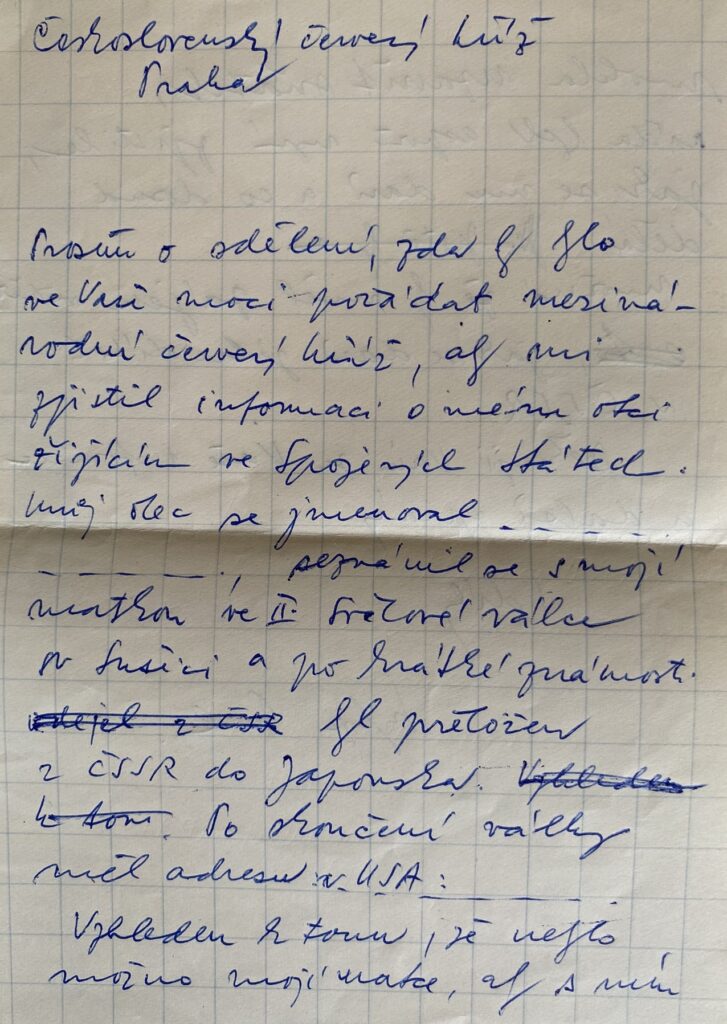 Československý červený kříž
Praha
Prosím o sdělení, zda by bylo
ve Vaší moci požádat meziná-
rodní červený kříž, aby mi
zjistil informaci o mém otci
žijícím ve Spojených státech.
Můj otec se jmenoval _ _ _ _ _
_ _ _ _ _ _, seznámil se s mojí
matkou ve II. Světové válce
v Sušici a po krátké známosti
odejel z ČSR byl přeložen
z ČSSR do Japonska. Vzhledem
k tomu. Po skončení války
měl adresu v USA: _ _ _ _ _
Vzhledem k tomu, že nebylo
možno mojí matce, aby s ním